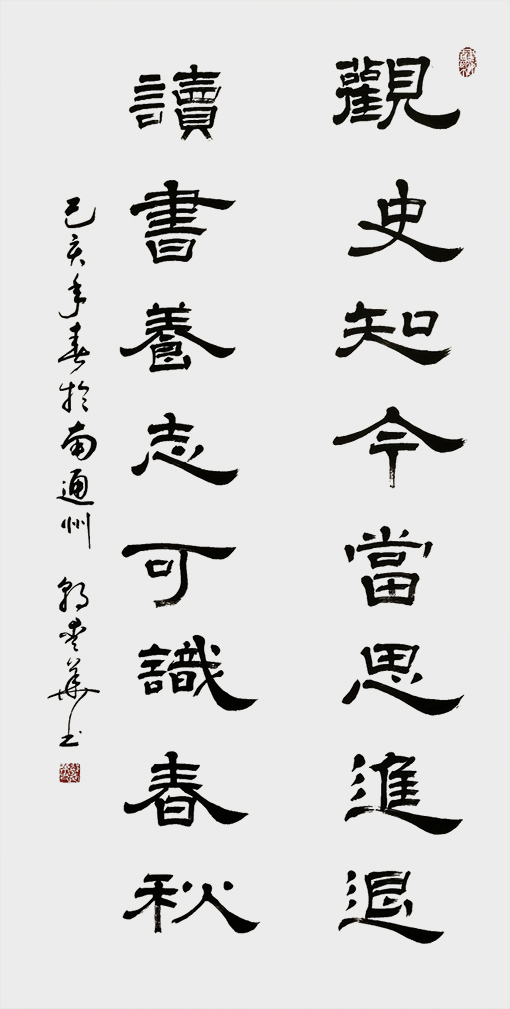 觀史知今當思進退
讀書養志可識春秋
己亥年春於南通州 華书